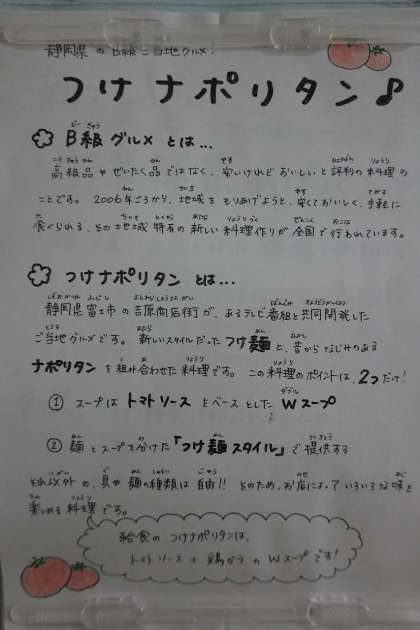 静岡県のB級ご当地グルメ!
つけナポリタン♪
B級グルメとは...
高級品やぜいたく品ではなく、安いけれどおいしいと評判の料理の
ことです。2006年ごろから、地域をもりあげようと、安くておいしく、手軽に
食べられる、その土地域特有の新しい料理作りが全国で行われています。
つけナポリタンとは...
静岡県富士市の吉原商店街が、あるテレビ番組と共同開発した
ご当地グルメです。新しいスタイルだったつけ麺と、昔からなじみのある
ナポリタンを組み合わせた料理です。この料理のポイントは、2つだけ!
① スープはトマトソースをベースとしたWスープ
② 麺とスープを分けた「つけ麺スタイル」で提供する
それ以外の、具や麺の種類は自由!!そのため、お店によっていろいろな味を
楽しめる料理です。
給食のつけナポリタンは、
トマトソース+鶏がらのWスープです!